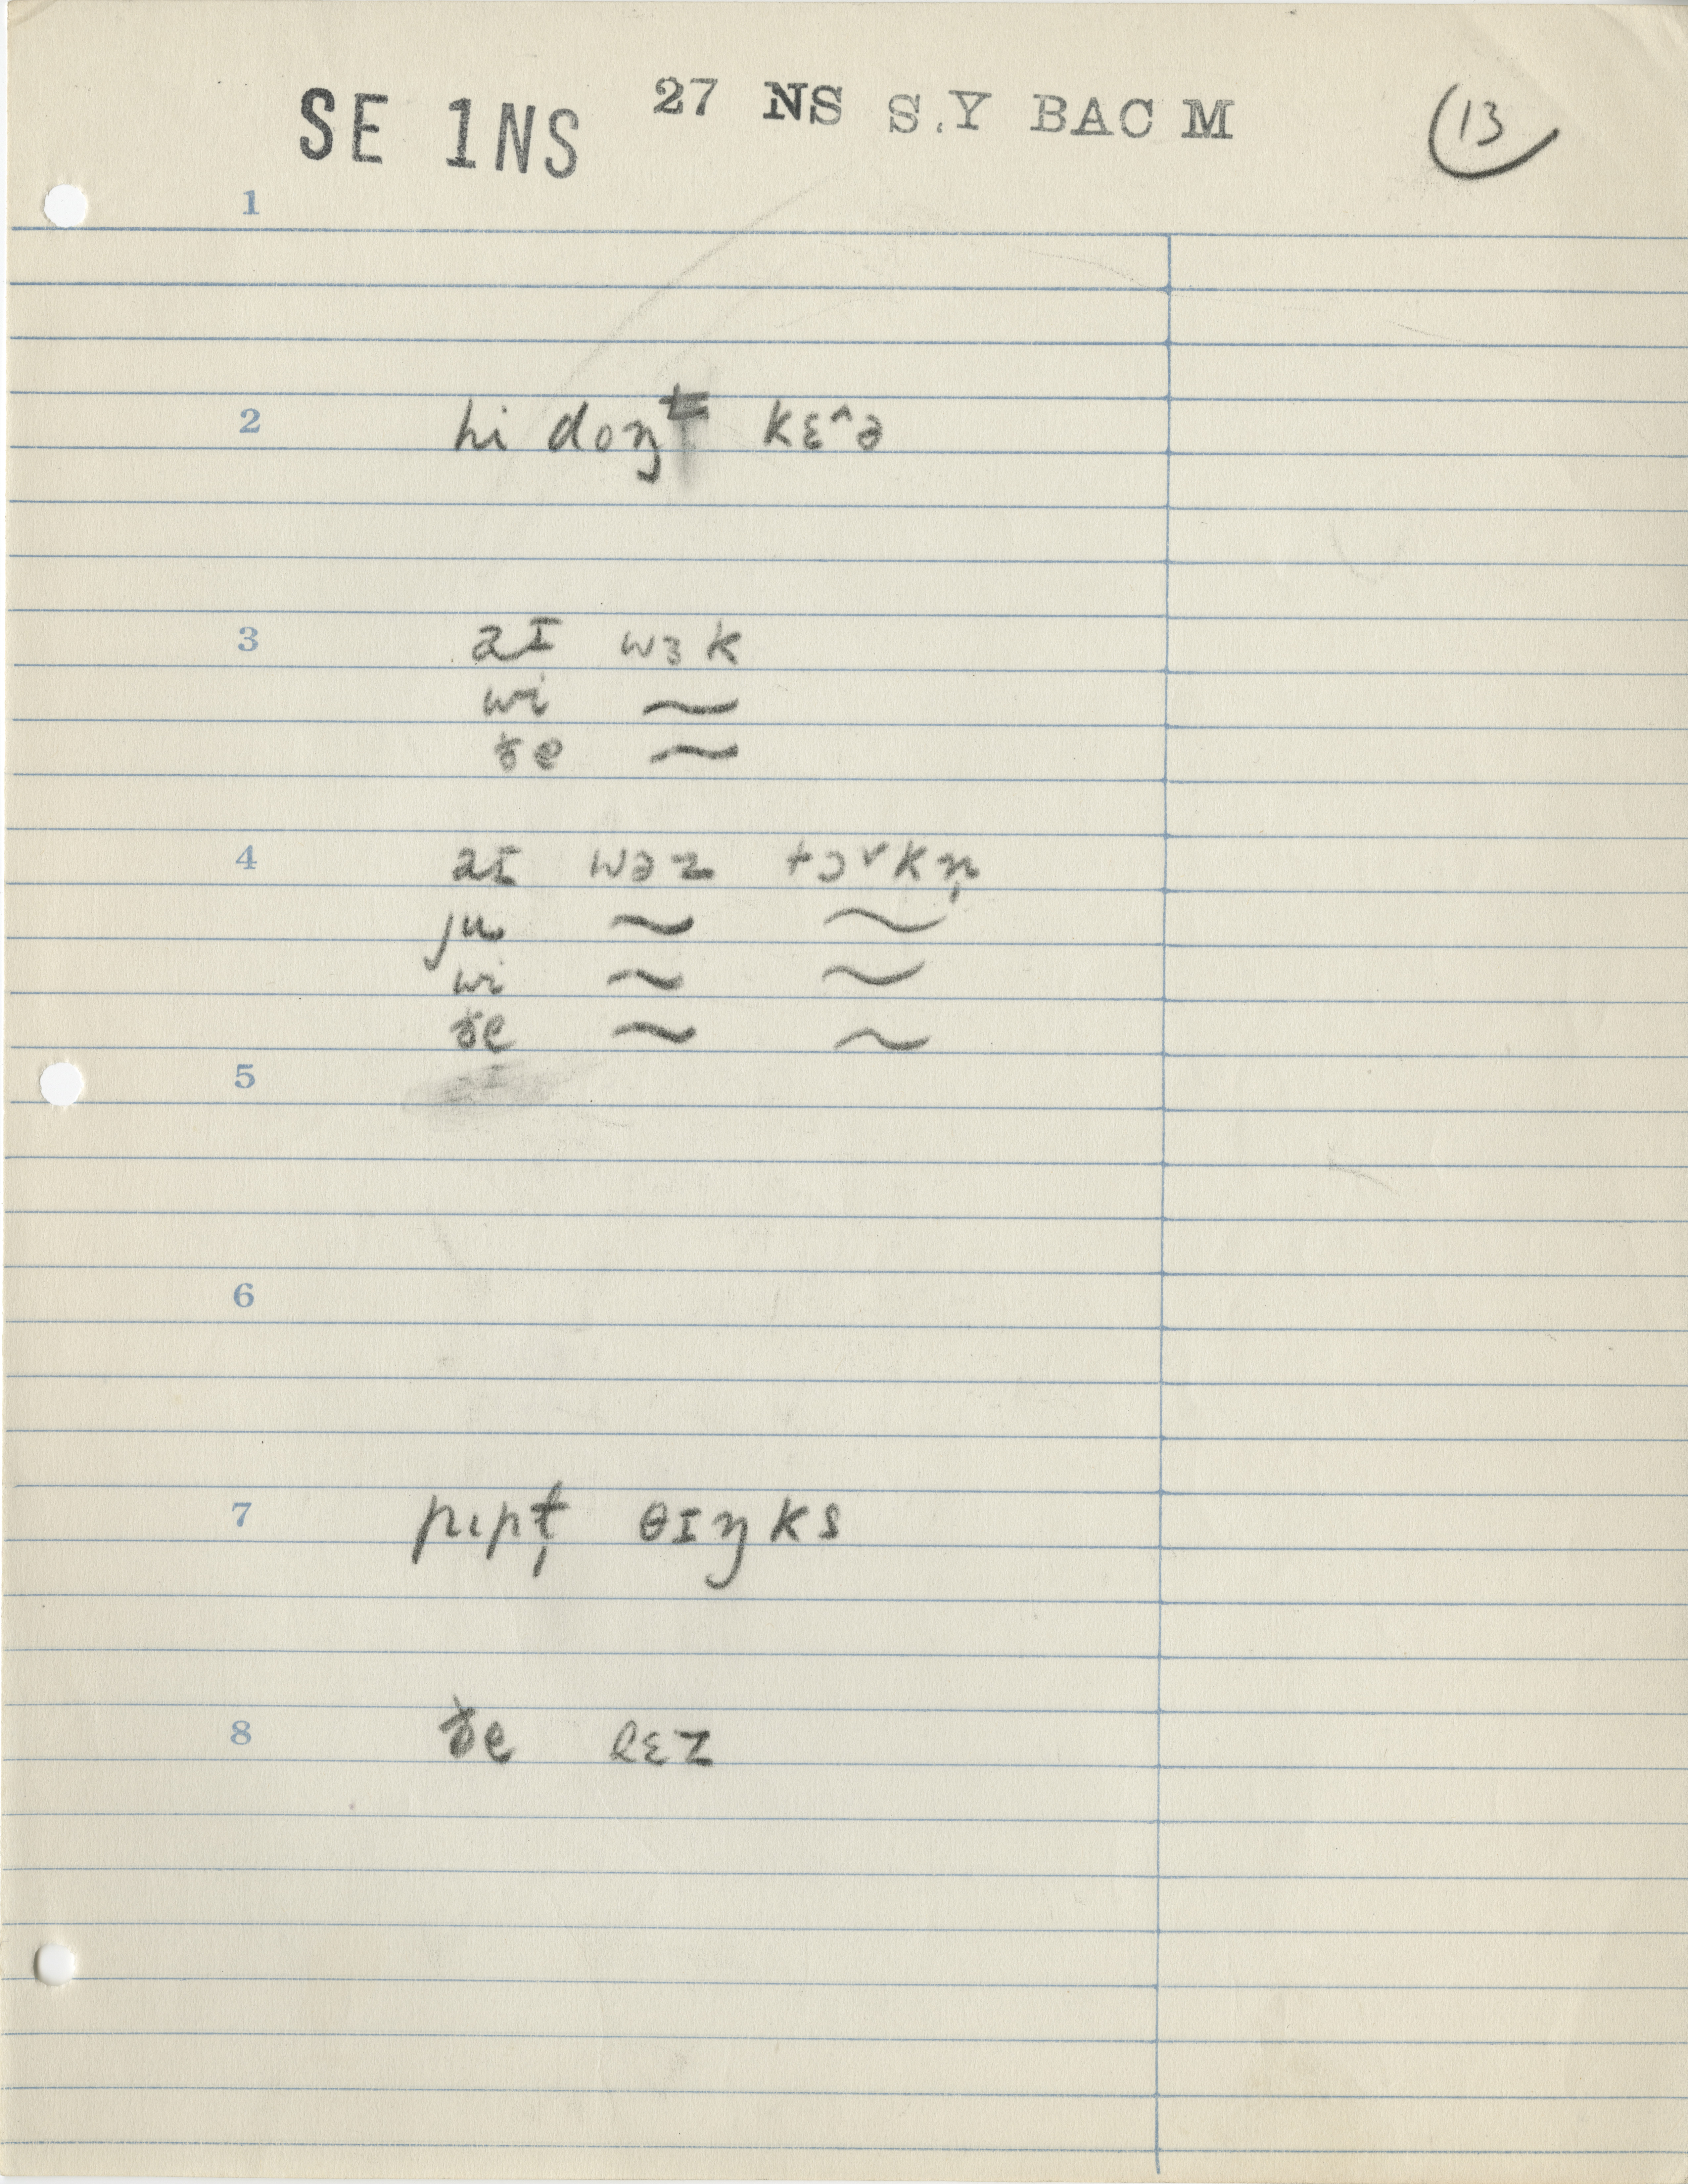 SE 1NS 27 NS S.Y BAC M 13
1
2 hi doŋt kɛ^ə
3 aɪ wɜk
wi ~
ðe ~
4 aɪ wəz tɔ˅kn̩
ju ~ ~
wi ~ ~
ðe ~ ~
5
6
7 pipɫ̩ θɪŋks
8 ðe sɛz